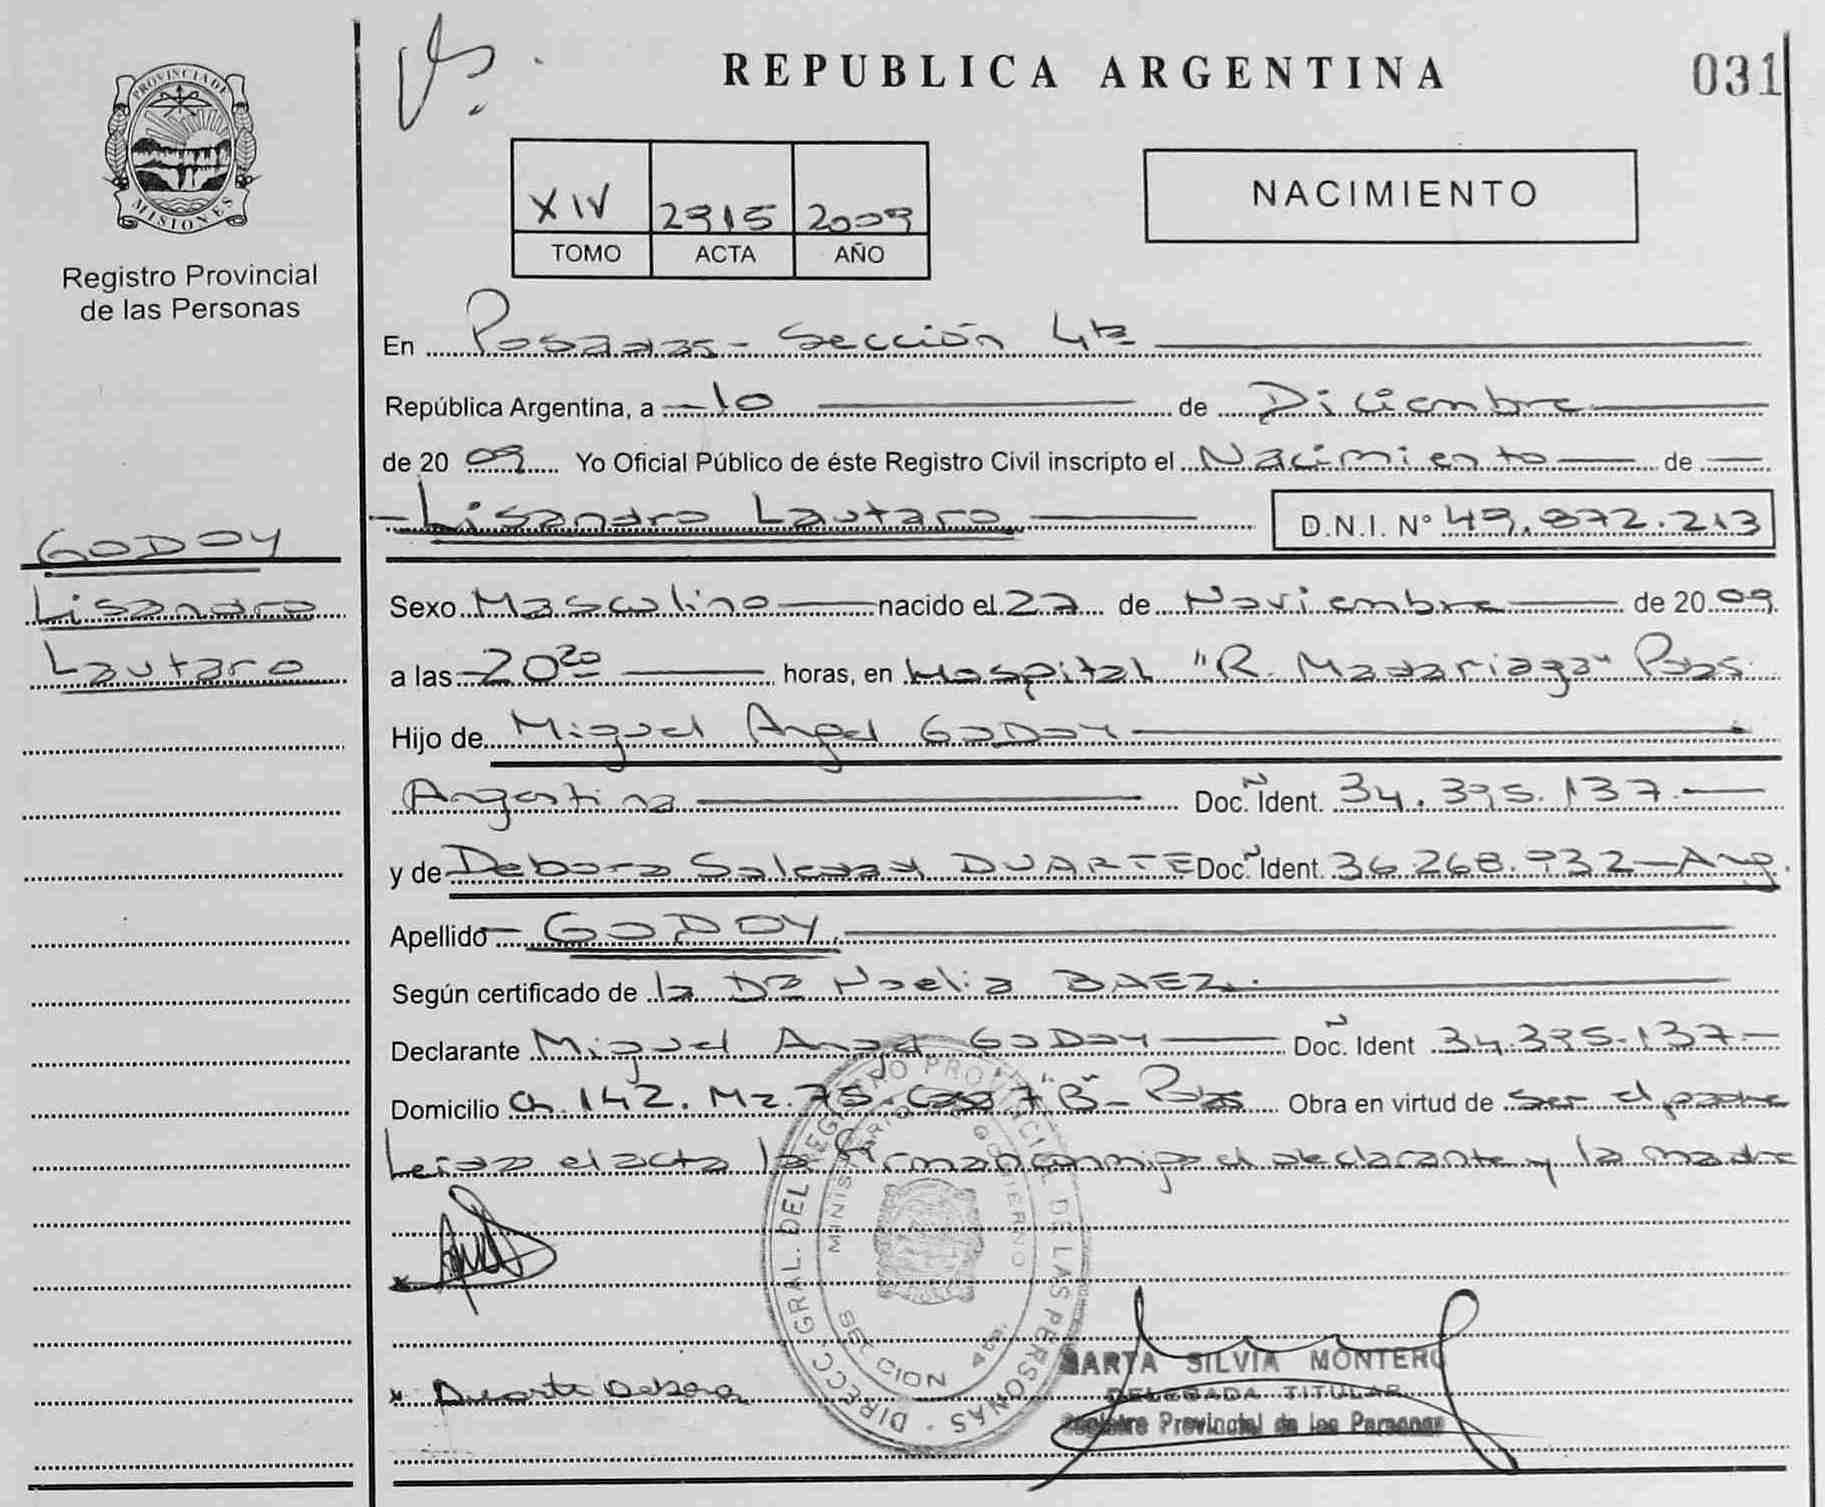 REPUBLICA ARGENTINA
031
PROVINCIA DE
MISIONES
Registro Provincial
de las Personas
XIV 2915 2009
TOMO ACTA AÑO
NACIMIENTO
En Posadas - Sección 4ta
República Argentina, a - 10 de Diciembre
de 20 09 Yo Oficial Público de éste Registro Civil inscripto el Nacimiento de
- Lisandro Lautaro D.N.I. Nº 49.872.213
GODOY
Lisandro
Lautaro
Sexo Masculino nacido el de Noviembre de 20 09
a las - 20 20 horas, en Hospital "R. Madariaga" Pdas.
Hijo de Miguel Angel GODOY
Argentina Doc. Ident. 34.395.137.-
y de Debora Soledad DUARTE Doc. Ident. 36.268.932 - Arg.
Apellido - GODOY.
Según certificado de la Dra Noelia BAEZ.
Declarante Miguel Angel GODOY Doc. Ident 34.395.137 -
Domicilio Ch. 142. Mz. 75 - Casa 7 "B" - Pdas Obra en virtud de ser el padre
Leída el acta la firman conmigo el declarante y la madre
DIRECC. GRAL. DEL REGISTRO PROVINCIAL DE LAS PERSONAS
MINISTERIO DE GOBIERNO
SECCION 4ta.
Duarte Debora
MARTA SILVIA MONTERO
DELEGADA TITULAR
Registro Provincial de las Personas